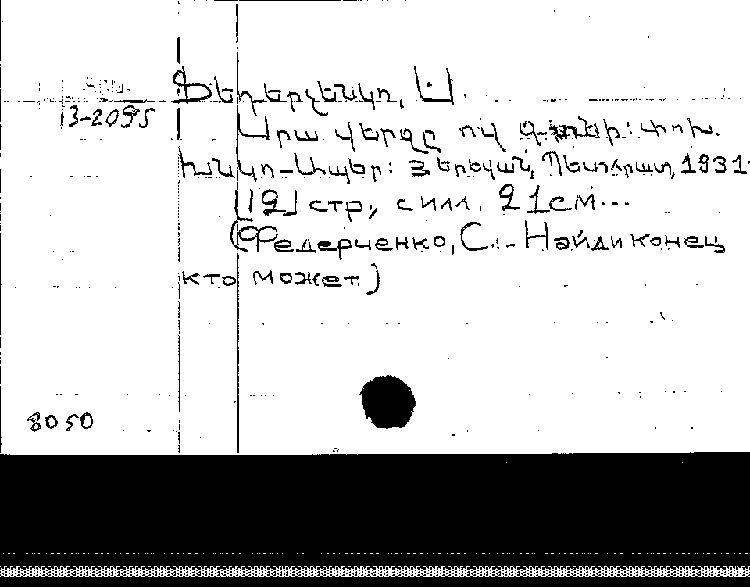 Арм.
13-2095
Ֆեդերչենկո, Ս.
Սրա վերջը ով գտներ: Փոխ.
Խնկո-Ապեր: Յերևան, Պետհրատ, 1931.
[12] стр., с илл. 21 см...
(Федерченко, С.. Найди конец
кто может)
8050